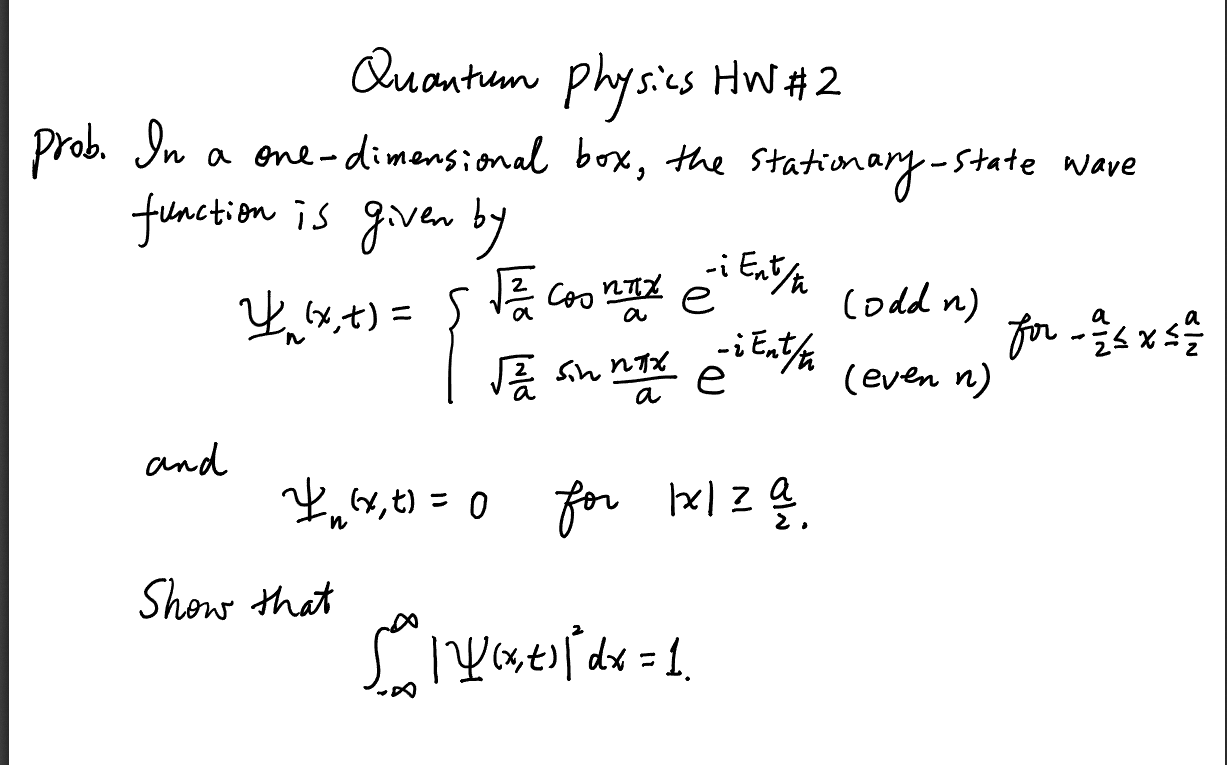 Quantum Physics HW#2
Prob. In a one-dimensional box, the stationary-state wave
function is given by
Ψₙ(x,t) = { √(2/a) cos nπx/a e^(-i Eₙt/ħ) (odd n)
√(2/a) sin nπx/a e^(-i Eₙt/ħ) (even n) for -a/2 ≤ x ≤ a/2
and
Ψₙ(x,t) = 0 for |x| ≥ a/2.
Show that
∫_{-∞}^{∞} |Ψ(x,t)|² dx = 1.